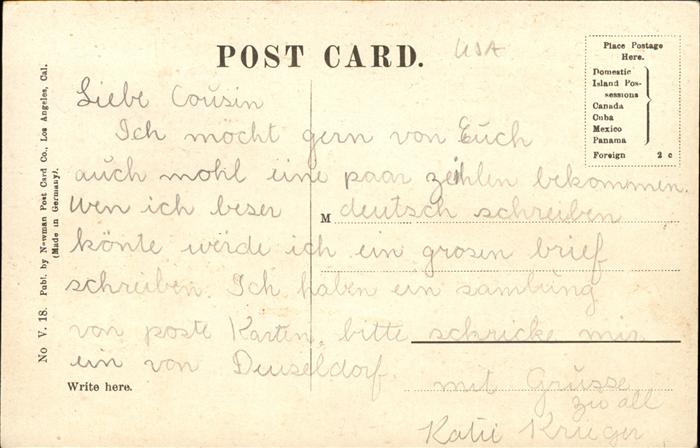 POST CARD.
USA
Place Postage
Here.
Domestic
Island Pos-
sessions
Canada
Cuba
Mexico
Panama
Foreign 2 c
No V. 18. Publ. by Newman Post Card Co., Los Angeles, Cal.
(Made in Germany).
Liebe Cousin
Ich mocht gern von Euch
auch mohl eine paar zeihlen bekommen.
Wen ich beser M deutsch schreiben
könte werde ich ein grosen brief
schreiben. Ich haben ein samlung
von poste Karten, bitte schricke mir
ein von Deuseldorf.
Write here.
mit Grüsse
zu all
Katie Krieger